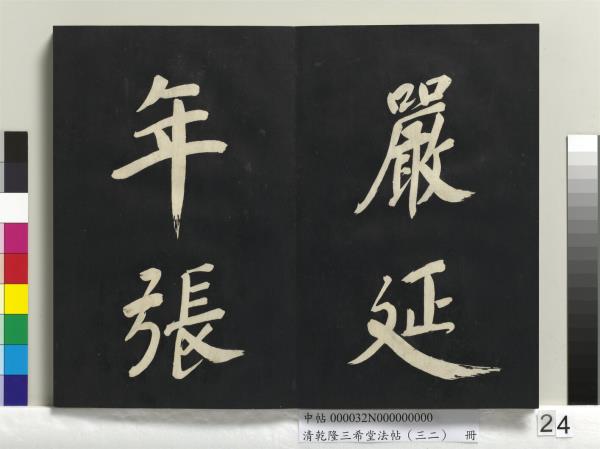 嚴延
年張
中帖 000032N000000000
清乾隆三希堂法帖（三二） 冊
24